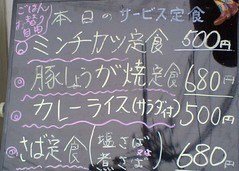 ごはん
替り
自由
本日のサービス定食
ミンチカツ定食 500円
豚しょうが焼定食 680円
カレーライス(サラダ付) 500円
さば定食(塩さば 煮さば) 680円